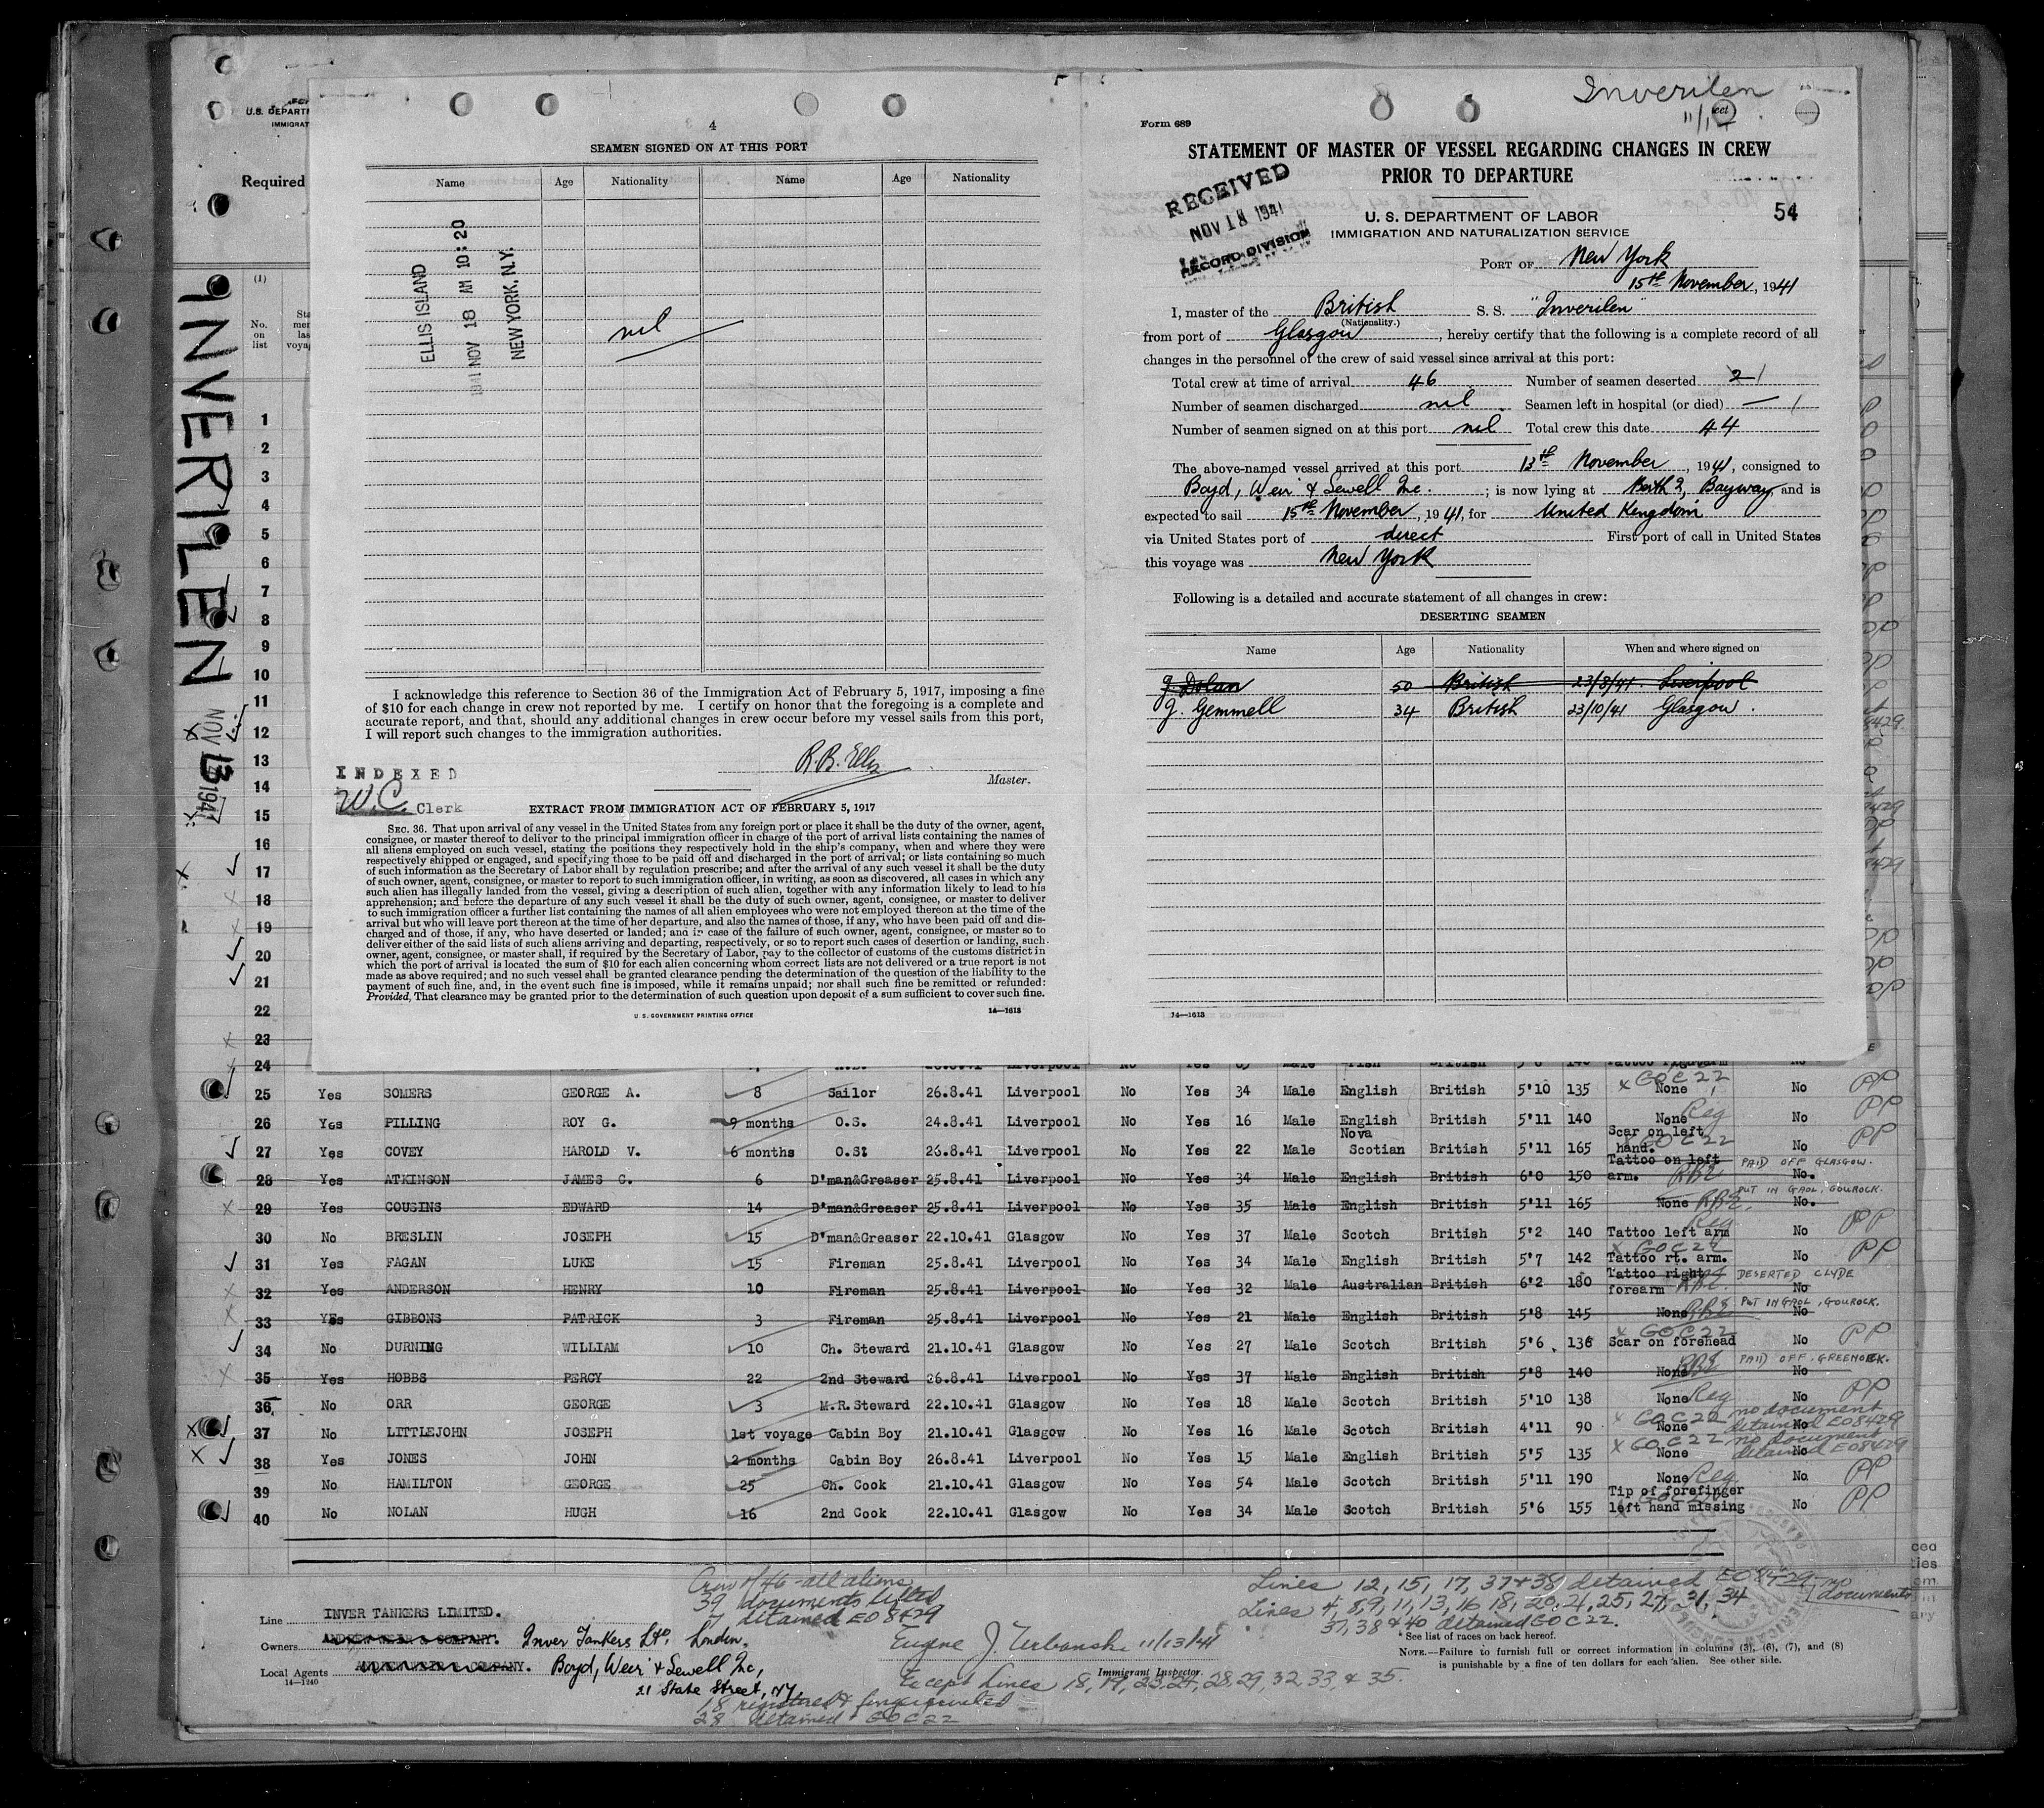 INVERILEN
NOV 13 1941
U.S. DEPARTM
IMMIGRAT
Required
(1)
No. on list
4
SEAMEN SIGNED ON AT THIS PORT
Name Age Nationality Name Age Nationality
ELLIS ISLAND
1941 NOV 18 AM 10:20
NEW YORK, N.Y.
nil
I acknowledge this reference to Section 36 of the Immigration Act of February 5, 1917, imposing a fine
of $10 for each change in crew not reported by me. I certify on honor that the foregoing is a complete and
accurate report, and that, should any additional changes in crew occur before my vessel sails from this port,
I will report such changes to the immigration authorities.
R.B. Ellis
Master.
INDEXED
W.C. Clerk
EXTRACT FROM IMMIGRATION ACT OF FEBRUARY 5, 1917
SEC. 36. That upon arrival of any vessel in the United States from any foreign port or place it shall be the duty of the owner, agent,
consignee, or master thereof to deliver to the principal immigration officer in charge of the port of arrival lists containing the names of
all aliens employed on such vessel, stating the positions they respectively hold in the ship's company, when and where they were
respectively shipped or engaged, and specifying those to be paid off and discharged in the port of arrival; or lists containing so much
of such information as the Secretary of Labor shall by regulation prescribe; and after the arrival of any such vessel it shall be the duty
of such owner, agent, consignee, or master to report to such immigration officer, in writing, as soon as discovered, all cases in which any
such alien has illegally landed from the vessel, giving a description of such alien, together with any information likely to lead to his
apprehension; and before the departure of any such vessel it shall be the duty of such owner, agent, consignee, or master to deliver
to such immigration officer a further list containing the names of all alien employees who were not employed thereon at the time of the
arrival but who will leave port thereon at the time of her departure, and also the names of those, if any, who have been paid off and dis-
charged and of those, if any, who have deserted or landed; and in case of the failure of such owner, agent, consignee, or master so to
deliver either of the said lists of such aliens arriving and departing, respectively, or so to report such cases of desertion or landing, such
owner, agent, consignee, or master shall, if required by the Secretary of Labor, pay to the collector of customs of the customs district in
which the port of arrival is located the sum of $10 for each alien concerning whom correct lists are not delivered or a true report is not
made as above required; and no such vessel shall be granted clearance pending the determination of the question of the liability to the
payment of such fine, and, in the event such fine is imposed, while it remains unpaid; nor shall such fine be remitted or refunded:
Provided, That clearance may be granted prior to the determination of such question upon deposit of a sum sufficient to cover such fine.
U. S. GOVERNMENT PRINTING OFFICE 14—1613
Inverilen
Form 689
STATEMENT OF MASTER OF VESSEL REGARDING CHANGES IN CREW
PRIOR TO DEPARTURE
RECEIVED
NOV 18 1941
RECORD DIVISION
54
U. S. DEPARTMENT OF LABOR
IMMIGRATION AND NATURALIZATION SERVICE
PORT OF New York
15th November, 1941
I, master of the British S. S. "Inverilen"
(Nationality.)
from port of Glasgow, hereby certify that the following is a complete record of all
changes in the personnel of the crew of said vessel since arrival at this port:
Total crew at time of arrival 46 Number of seamen deserted 2 1
Number of seamen discharged nil Seamen left in hospital (or died) — 1
Number of seamen signed on at this port nil Total crew this date 44
The above-named vessel arrived at this port 13th November, 1941, consigned to
Boyd, Weir & Sewell Inc.; is now lying at Berth 2, Bayway, and is
expected to sail 15th November, 1941, for United Kingdom
via United States port of direct First port of call in United States
this voyage was New York
Following is a detailed and accurate statement of all changes in crew:
DESERTING SEAMEN
Name Age Nationality When and where signed on
J. Dolan 50 British 23/8/41. Liverpool
J. Gemmell 34 British 23/10/41 Glasgow.
14—1613
1
2
3
4
5
6
7
8
9
10
11
12
13
14
15
16
17
18
19
20
21
22
23
24
25 Yes SOMERS GEORGE A. 8 Sailor 26.8.41 Liverpool No Yes 34 Male English British 5'10 135 x GOC22 None No PP
26 Yes PILLING ROY G. 9 months O.S. 24.8.41 Liverpool No Yes 16 Male English British 5'11 140 None Reg No PP
27 Yes COVEY HAROLD V. 6 months O.S. 26.8.41 Liverpool No Yes 22 Male Nova Scotian British 5'11 165 Scar on left hand. GOC22 No PP
28 Yes ATKINSON JAMES C. 6 D'man&Greaser 25.8.41 Liverpool No Yes 34 Male English British 6'0 150 Tattoo on left arm. RBE No. PAID OFF GLASGOW.
29 Yes COUSINS EDWARD 14 D'man&Greaser 25.8.41 Liverpool No Yes 35 Male English British 5'11 165 None RBE. No. PUT IN GAOL, GOUROCK.
30 No BRESLIN JOSEPH 15 D'man&Greaser 22.10.41 Glasgow No Yes 37 Male Scotch British 5'2 140 Reg Tattoo left arm No PP
31 Yes FAGAN LUKE 15 Fireman 25.8.41 Liverpool No Yes 34 Male English British 5'7 142 x GOC22 Tattoo rt. arm. No PP
32 Yes ANDERSON HENRY 10 Fireman 25.8.41 Liverpool No Yes 32 Male Australian British 6'2 180 Tattoo right forearm RBE. No DESERTED CLYDE
33 Yes GIBBONS PATRICK 3 Fireman 25.8.41 Liverpool No Yes 21 Male English British 5'8 145 None RBE No PUT IN GAOL, GOUROCK.
34 No DURNING WILLIAM 10 Ch. Steward 21.10.41 Glasgow No Yes 27 Male Scotch British 5'6 136 x GOC22 Scar on forehead No PP
35 Yes HOBBS PERCY 22 2nd Steward 26.8.41 Liverpool No Yes 37 Male English British 5'8 140 None RBE No PAID OFF GREENOCK.
36 No ORR GEORGE 3 M.R.Steward 22.10.41 Glasgow No Yes 18 Male Scotch British 5'10 138 None Reg No PP
37 No LITTLEJOHN JOSEPH 1st voyage Cabin Boy 21.10.41 Glasgow No Yes 16 Male Scotch British 4'11 90 x GOC22 None No no document detained EO8429
38 Yes JONES JOHN 2 months Cabin Boy 26.8.41 Liverpool No Yes 15 Male English British 5'5 135 x GOC22 None No no document detained EO8429
39 No HAMILTON GEORGE 25 Ch. Cook 21.10.41 Glasgow No Yes 54 Male Scotch British 5'11 190 None Reg No PP
40 No NOLAN HUGH 16 2nd Cook 22.10.41 Glasgow No Yes 34 Male Scotch British 5'6 155 Tip of forefinger left hand missing GOC22 No PP
Crew of 46 - all aliens
39 documents lifted
7 detained EO8429
Lines 12, 15, 17, 37 & 38 detained EO8429 - no documents
Lines 4, 8, 9, 11, 13, 16, 18, 20, 21, 25, 27, 31, 34
37, 38 & 40 detained GOC22.
Line INVER TANKERS LIMITED.
Owners ANDREW WEIR & COMPANY. Inver Tankers Ltd. London.
Local Agents ANDREW WEIR & COMPANY. Boyd, Weir & Sewell Inc,
21 State Street, NY.
14—1240
Eugene J. Urbanski 11/13/41
Immigrant Inspector.
Except Lines 18, 19, 23, 24, 28, 29, 32, 33, & 35.
18 registered & fingerprinted
28 detained GOC22
* See list of races on back hereof.
NOTE.—Failure to furnish full or correct information in columns (3), (6), (7), and (8)
is punishable by a fine of ten dollars for each alien. See other side.